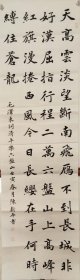 天高雲淡望斷南飛雁不到長城非
好漢屈指行程二萬六盤山上高峰
紅旗漫捲西風今日長纓在手何時
縛住蒼龍
毛澤東詞清平樂六盤山